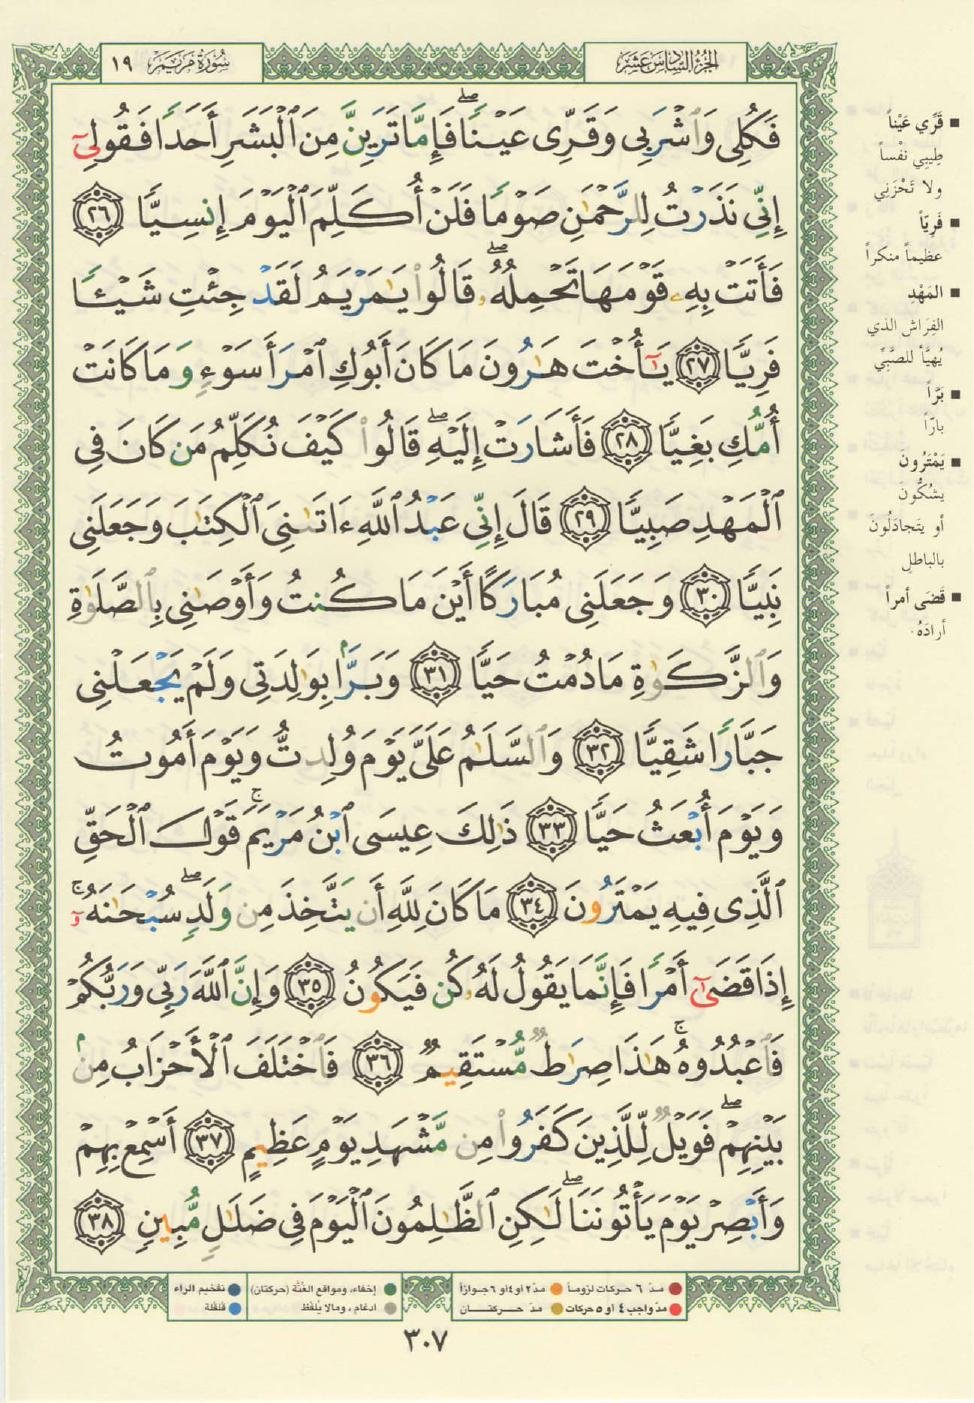 سُورَةُ مَرْيَمَ ١٩
الجُزْءُ السَّادِسَ عَشَرَ
فَكُلِى وَٱشْرَبِى وَقَرِّى عَيْنًا ۖ فَإِمَّا تَرَيِنَّ مِنَ ٱلْبَشَرِ أَحَدًا فَقُولِىٓ
إِنِّى نَذَرْتُ لِلرَّحْمَٰنِ صَوْمًا فَلَنْ أُكَلِّمَ ٱلْيَوْمَ إِنسِيًّا ٢٦
فَأَتَتْ بِهِۦ قَوْمَهَا تَحْمِلُهُۥ ۖ قَالُوا۟ يَٰمَرْيَمُ لَقَدْ جِئْتِ شَيْـًٔا
فَرِيًّا ٢٧ يَٰٓأُخْتَ هَٰرُونَ مَا كَانَ أَبُوكِ ٱمْرَأَ سَوْءٍ وَمَا كَانَتْ
أُمُّكِ بَغِيًّا ٢٨ فَأَشَارَتْ إِلَيْهِ ۖ قَالُوا۟ كَيْفَ نُكَلِّمُ مَن كَانَ فِى
ٱلْمَهْدِ صَبِيًّا ٢٩ قَالَ إِنِّى عَبْدُ ٱللَّهِ ءَاتَىٰنِىَ ٱلْكِتَٰبَ وَجَعَلَنِى
نَبِيًّا ٣٠ وَجَعَلَنِى مُبَارَكًا أَيْنَ مَا كُنتُ وَأَوْصَٰنِى بِٱلصَّلَوٰةِ
وَٱلزَّكَوٰةِ مَا دُمْتُ حَيًّا ٣١ وَبَرًّۢا بِوَٰلِدَتِى وَلَمْ يَجْعَلْنِى
جَبَّارًا شَقِيًّا ٣٢ وَٱلسَّلَٰمُ عَلَىَّ يَوْمَ وُلِدتُّ وَيَوْمَ أَمُوتُ
وَيَوْمَ أُبْعَثُ حَيًّا ٣٣ ذَٰلِكَ عِيسَى ٱبْنُ مَرْيَمَ ۚ قَوْلَ ٱلْحَقِّ
ٱلَّذِى فِيهِ يَمْتَرُونَ ٣٤ مَا كَانَ لِلَّهِ أَن يَتَّخِذَ مِن وَلَدٍ ۖ سُبْحَٰنَهُۥٓ ۚ
إِذَا قَضَىٰٓ أَمْرًا فَإِنَّمَا يَقُولُ لَهُۥ كُن فَيَكُونُ ٣٥ وَإِنَّ ٱللَّهَ رَبِّى وَرَبُّكُمْ
فَٱعْبُدُوهُ ۚ هَٰذَا صِرَٰطٌ مُّسْتَقِيمٌ ٣٦ فَٱخْتَلَفَ ٱلْأَحْزَابُ مِنۢ
بَيْنِهِمْ ۖ فَوَيْلٌ لِّلَّذِينَ كَفَرُوا۟ مِن مَّشْهَدِ يَوْمٍ عَظِيمٍ ٣٧ أَسْمِعْ بِهِمْ
وَأَبْصِرْ يَوْمَ يَأْتُونَنَا ۖ لَٰكِنِ ٱلظَّٰلِمُونَ ٱلْيَوْمَ فِى ضَلَٰلٍ مُّبِينٍ ٣٨
قَرِّي عَيْناً
طِيبِي نفْساً
ولا تَحْزَنِي
فَرِيّاً
عظيماً منكراً
المَهْدِ
الفِرَاشِ الذي
يُهيَّأ للصَّبِيِّ
بَرّاً
بارّاً
يَمْتَرُونَ
يشُكُّونَ
أو يتجادَلُونَ
بالباطلِ
قَضَى أمراً
أرادَهُ
مدّ ٦ حركات لزوماً مدّ ٢ أو ٤ أو ٦ جوازاً إخفاء، ومواقع الغُنَّة (حركتان) تفخيم الراء
مدّ واجب ٤ أو ٥ حركات مدّ حركتان إدغام، وما لا يُلفَظ قلقلة
٣٠٧